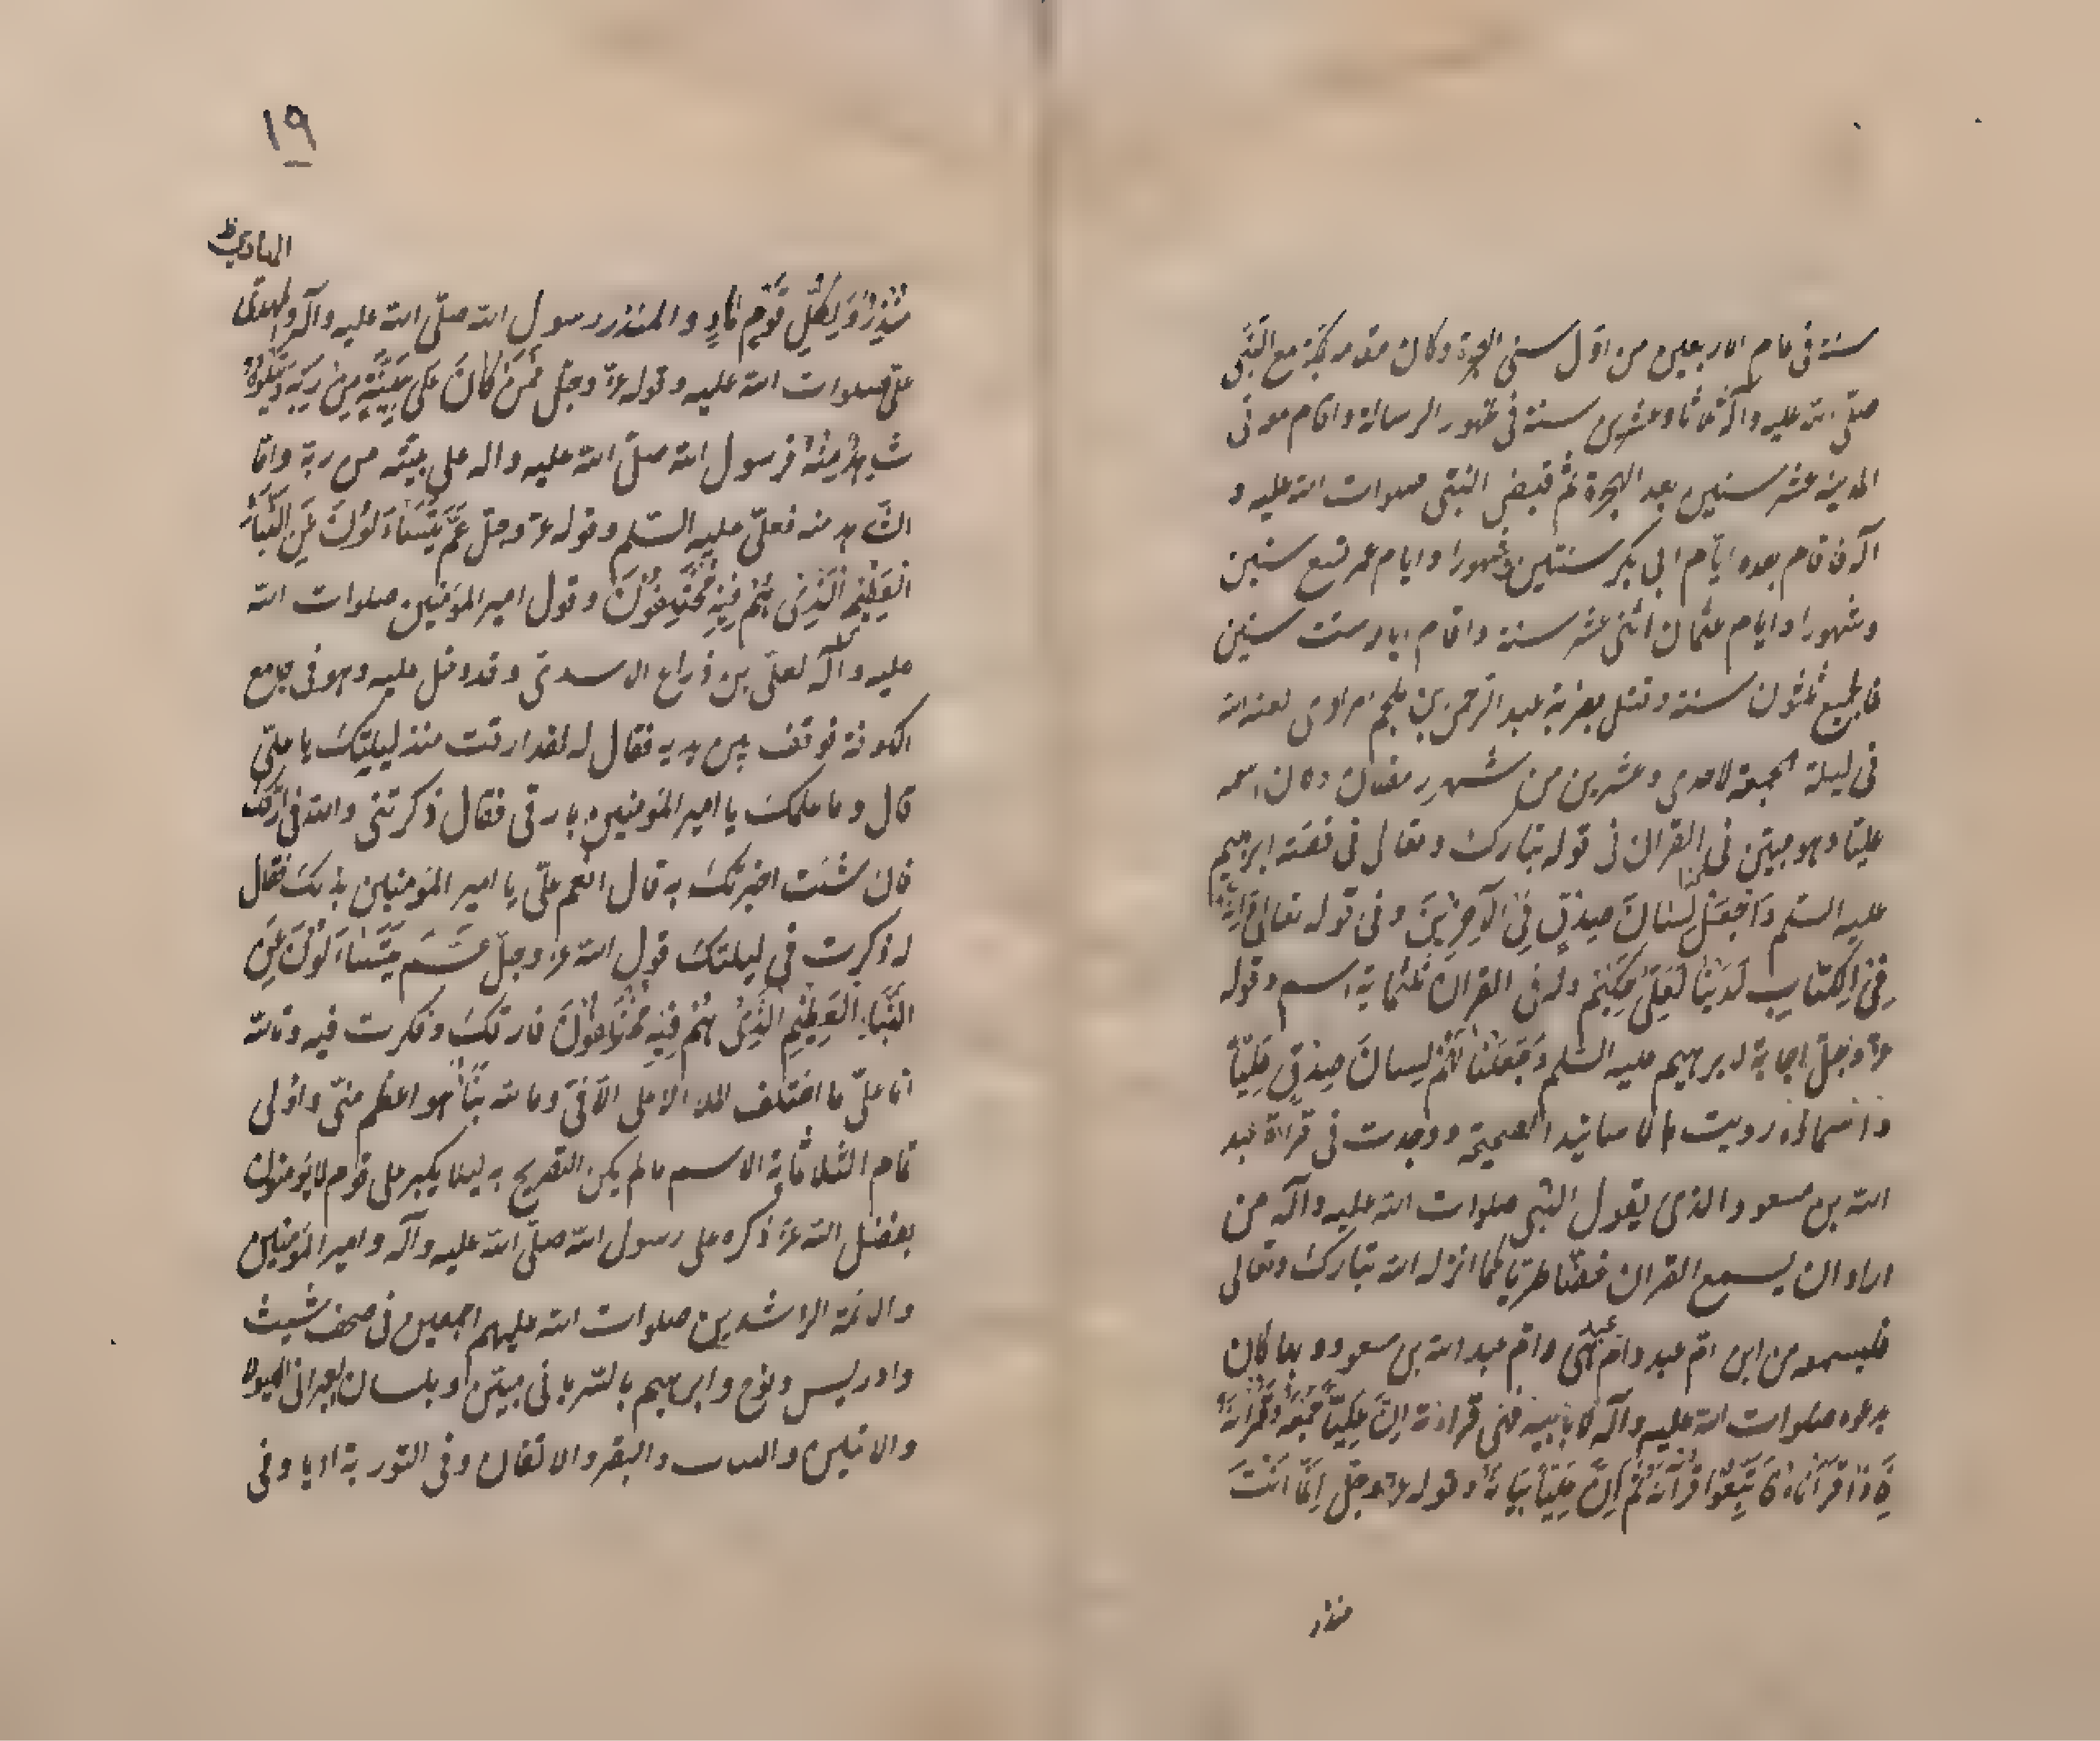 سنة فى عام الاربعين من اول سنى الهجرة وكان مقامه بمكة مع النبى
صلّى الله عليه وآله ثلاثا وعشرين سنة فى ظهور الرسالة واقام معه فى
المدينة عشر سنين بعد الهجرة ثم قبض النبى صلوات الله عليه و
آله فاقام بعده ايام ابى بكر سنتين وشهورا وايام عمر تسع سنين
وشهورا وايام عثمان اثنى عشر سنة واقام ايامه ست سنين
فالجميع ثلثون سنة وقتل بضربة عبد الرحمن بن ملجم المرادى لعنه الله
فى ليلة الجمعة لاحدى وعشرين من شهر رمضان وكان اسمه
عليّا وهو مبيّن فى القران فى قوله تبارك وتعالى فى قصّة ابرهيم
عليه السلم وَاجْعَلْ لِى لِسَانَ صِدْقٍ فِى الْآخِرِينَ وفى قوله تعالى وَاِنَّهُ
فِى اُمِّ الْكِتَابِ لَدَيْنَا لَعَلِىٌّ حَكِيمٌ وله فى القران ثلثماية اسم وقوله
عزّ وجلّ اجابة لابرهيم عليه السلم وَجَعَلْنَا لَهُمْ لِسَانَ صِدْقٍ عَلِيّاً
واسماؤه رويت بالاسانيد الصحيحة ووجدت فى قراءة عبد
الله بن مسعود الذى يقول النبى صلوات الله عليه وآله من
اراد ان يسمع القران غضّا طريّا كما انزله الله تبارك وتعالى
فليسمعه من ابن امّ عبد وامّ عبد هى امّ عبد الله بن مسعود وبها كان
يدعوه صلوات الله عليه وآله لا بابيه ففى قراءته اِنَّ عَلِيّاً جَمْعَهُ وَقُرْآنَهُ
فَاِذَا قَرَأْنَاهُ فَاتَّبِعُوا قُرْآنَهُ ثُمَّ اِنَّ عَلِيّاً بَيَانَهُ وقوله عزّ وجلّ اِنَّمَا اَنْتَ
منذر
١٩
الهادى ظ
مُنْذِرٌ وَلِكُلِّ قَوْمٍ هَادٍ والمنذر رسول الله صلّى الله عليه وآله والهدى
علىّ صلوات الله عليه وقوله عزّ وجلّ اَفَمَنْ كَانَ عَلَى بَيِّنَةٍ مِنْ رَبِّهِ وَيَتْلُوهُ
شَاهِدٌ مِنْهُ فرسول الله صلّى الله عليه واله على بيّنه من ربّه وامّا
الشاهد منه فعلىّ عليه السّلم وقوله عزّ وجلّ عَمَّ يَتَسَاءَلُونَ عَنِ النَّبَأِ
الْعَظِيمِ الَّذِى هُمْ فِيهِ مُخْتَلِفُونَ وقول امير المؤمنين صلوات الله
عليه وآله لعلىّ بن ذراع الاسدى وقد دخل عليه وهو فى جامع
الكوفة فوقف بين يديه فقال له لقد ارقت منذ ليلتك يا علىّ
قال وما علمك يا امير المؤمنين بارقى فقال ذكرتنى والله فى ارقك
فان شئت اخبرتك به قال انعم علىّ يا امير المؤمنين بذلك فقال
له ذكرت فى ليلتك قول الله عزّ وجلّ عَمَّ يَتَسَاءَلُونَ عَنِ
النَّبَأِ الْعَظِيمِ الَّذِى هُمْ فِيهِ مُخْتَلِفُونَ فارقك وفكرت فيه وتالله
انا علىّ ما اختلف الملأ الاعلى الّا فىّ وما لله نَبَأٌ هو اعظم منّى واولى
تمام الثلاثماية الاسم ما لم يكن التصريح به ليلا يكبر على قوم لا يؤمنون
بفضل الله عزّ ذكره على رسول الله صلّى الله عليه وآله وامير المؤمنين
والائمة الراشدين صلوات الله عليهم اجمعين فى صحف شيث
وادريس ونوح وابرهيم بالسّريانى مبيّن او بلسان العبرانى الهيولا
والامين والبقر والاتقان وفى التورية اديا وفى